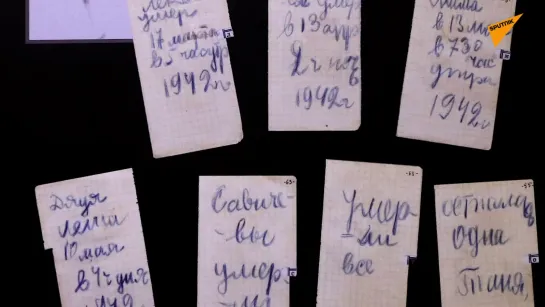 SPUTNIK
умер
17 марта
в 5 часутр
1942г
умер
в 13 апр
2ч ноч
1942г
в 13 мая
в 730
час
утра
1942г
Дядя
Леша
10 мая
в 4ч дня
Савиче
-вы
умер
Умер
-ли
все
осталась
одна
Таня